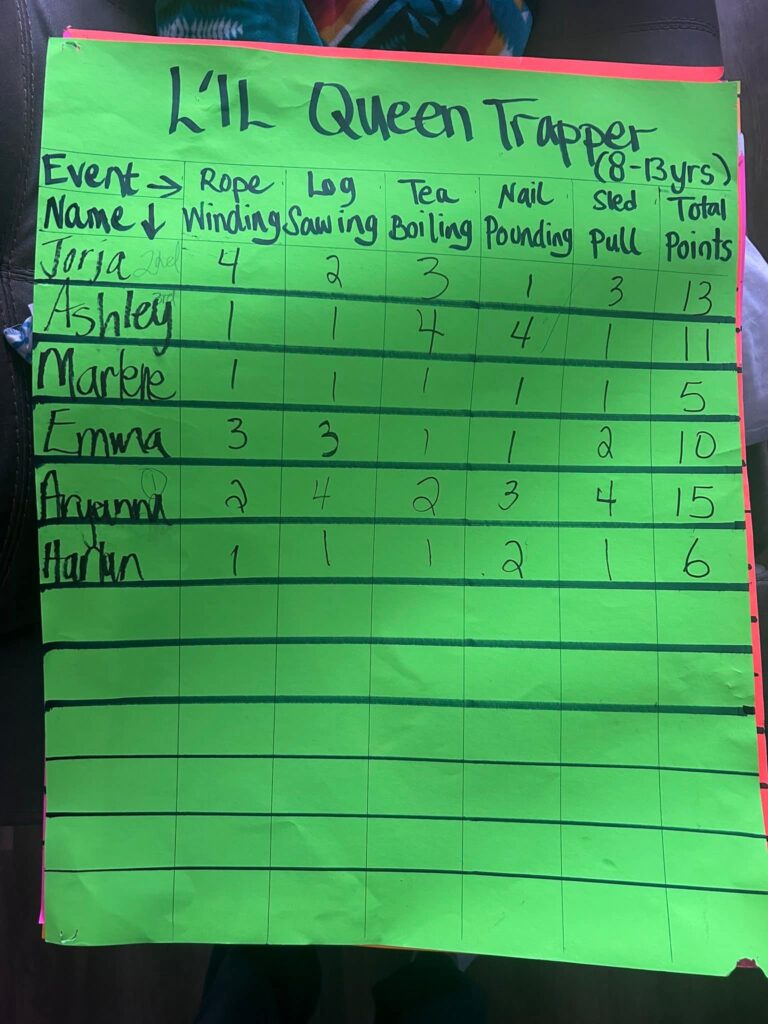 L'IL Queen Trapper
(8-13yrs)
Event → Rope Winding Log Sawing Tea Boiling Nail Pounding Sled Pull Total Points
Name ↓
Jorja 2nd 4 2 3 1 3 13
Ashley 3rd 1 1 4 4 1 11
Marlene 1 1 1 1 1 5
Emma 3 3 1 1 2 10
Aryanna 1 2 4 2 3 4 15
Harlan 1 1 1 2 1 6